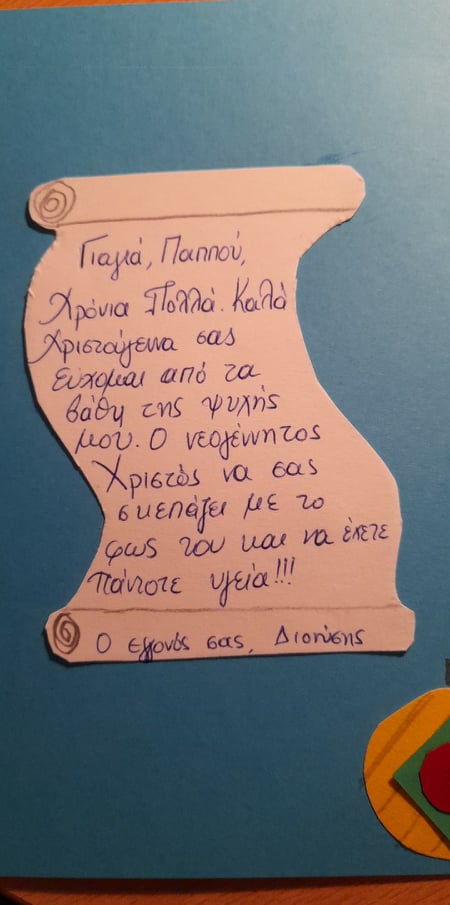 Γιαγιά, Παππού,
Χρόνια Πολλά. Καλά
Χριστούγεννα σας
εύχομαι από τα
βάθη της ψυχής
μου. Ο νεογέννητος
Χριστός να σας
σκεπάζει με το
φως του και να έχετε
πάντοτε υγεία!!!
Ο εγγονός σας, Διονύσης